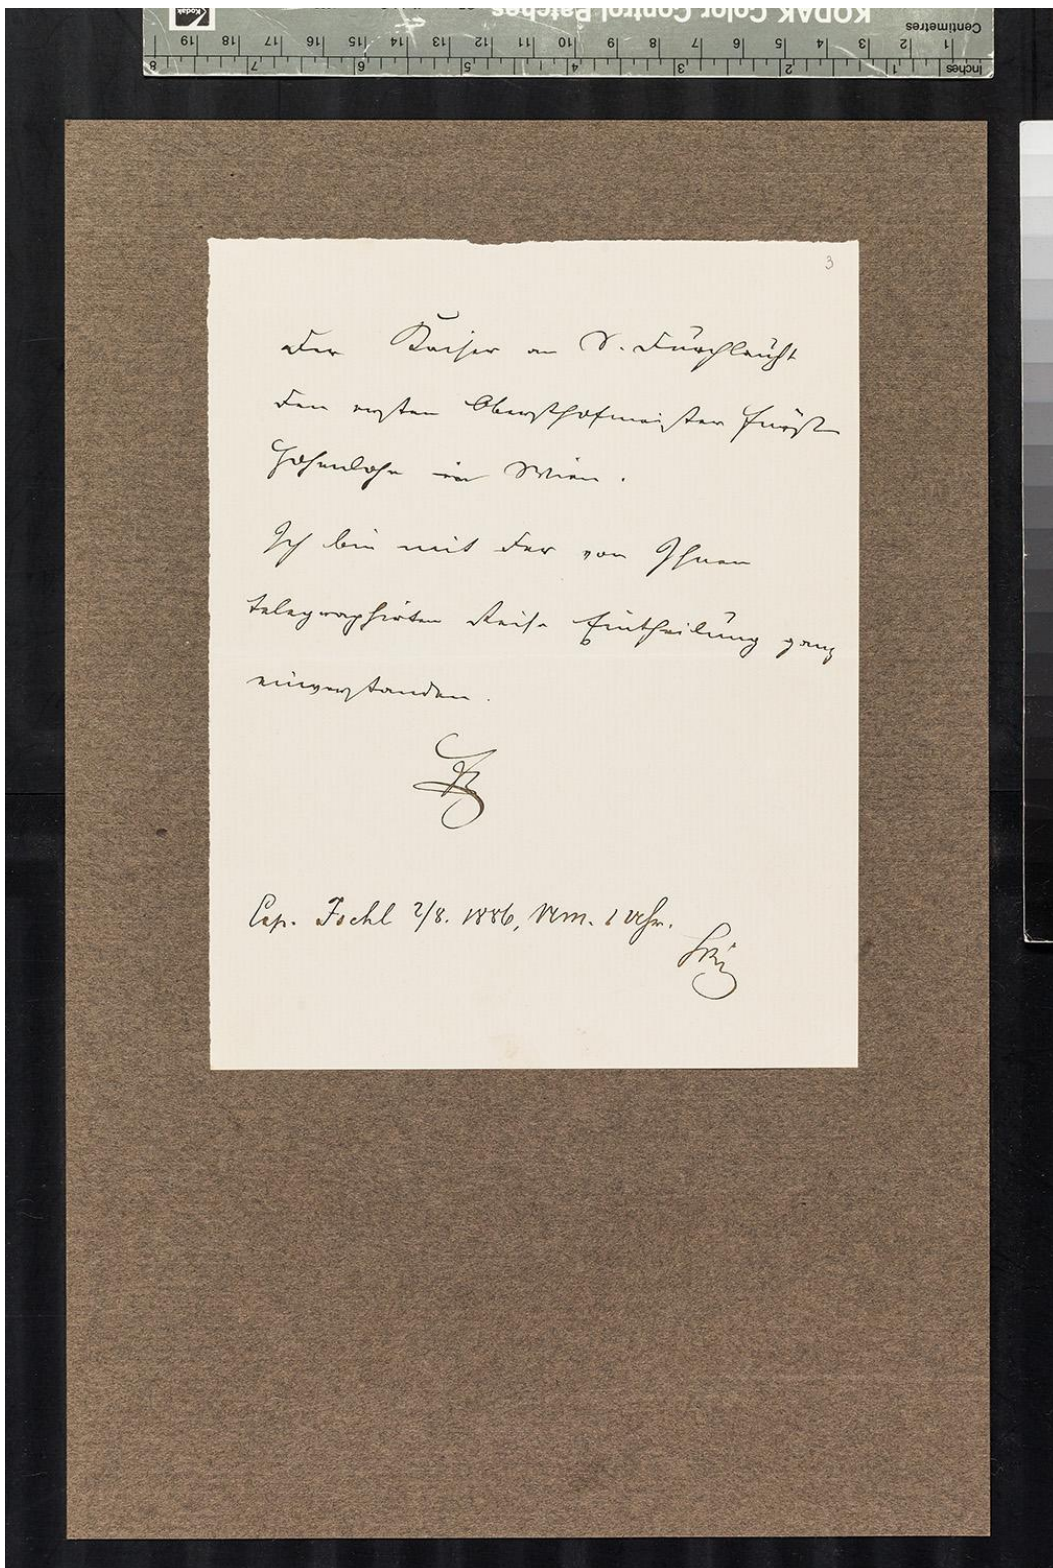 KODAK Color Control Patches
Kodak
Centimetres
1 2 3 4 5 6 7 8 9 10 11 12 13 14 15 16 17 18 19
Inches
1 2 3 4 5 6 7 8
3
Der Kaiser an S. Durchlaucht
den ersten Obersthofmeister Fürst
Hohenlohe in Wien.
Ich bin mit der von Ihnen
telegraphirten Reise Eintheilung ganz
einverstanden.
Exp. Ischl 2/8. 1886, 1 Uhr.